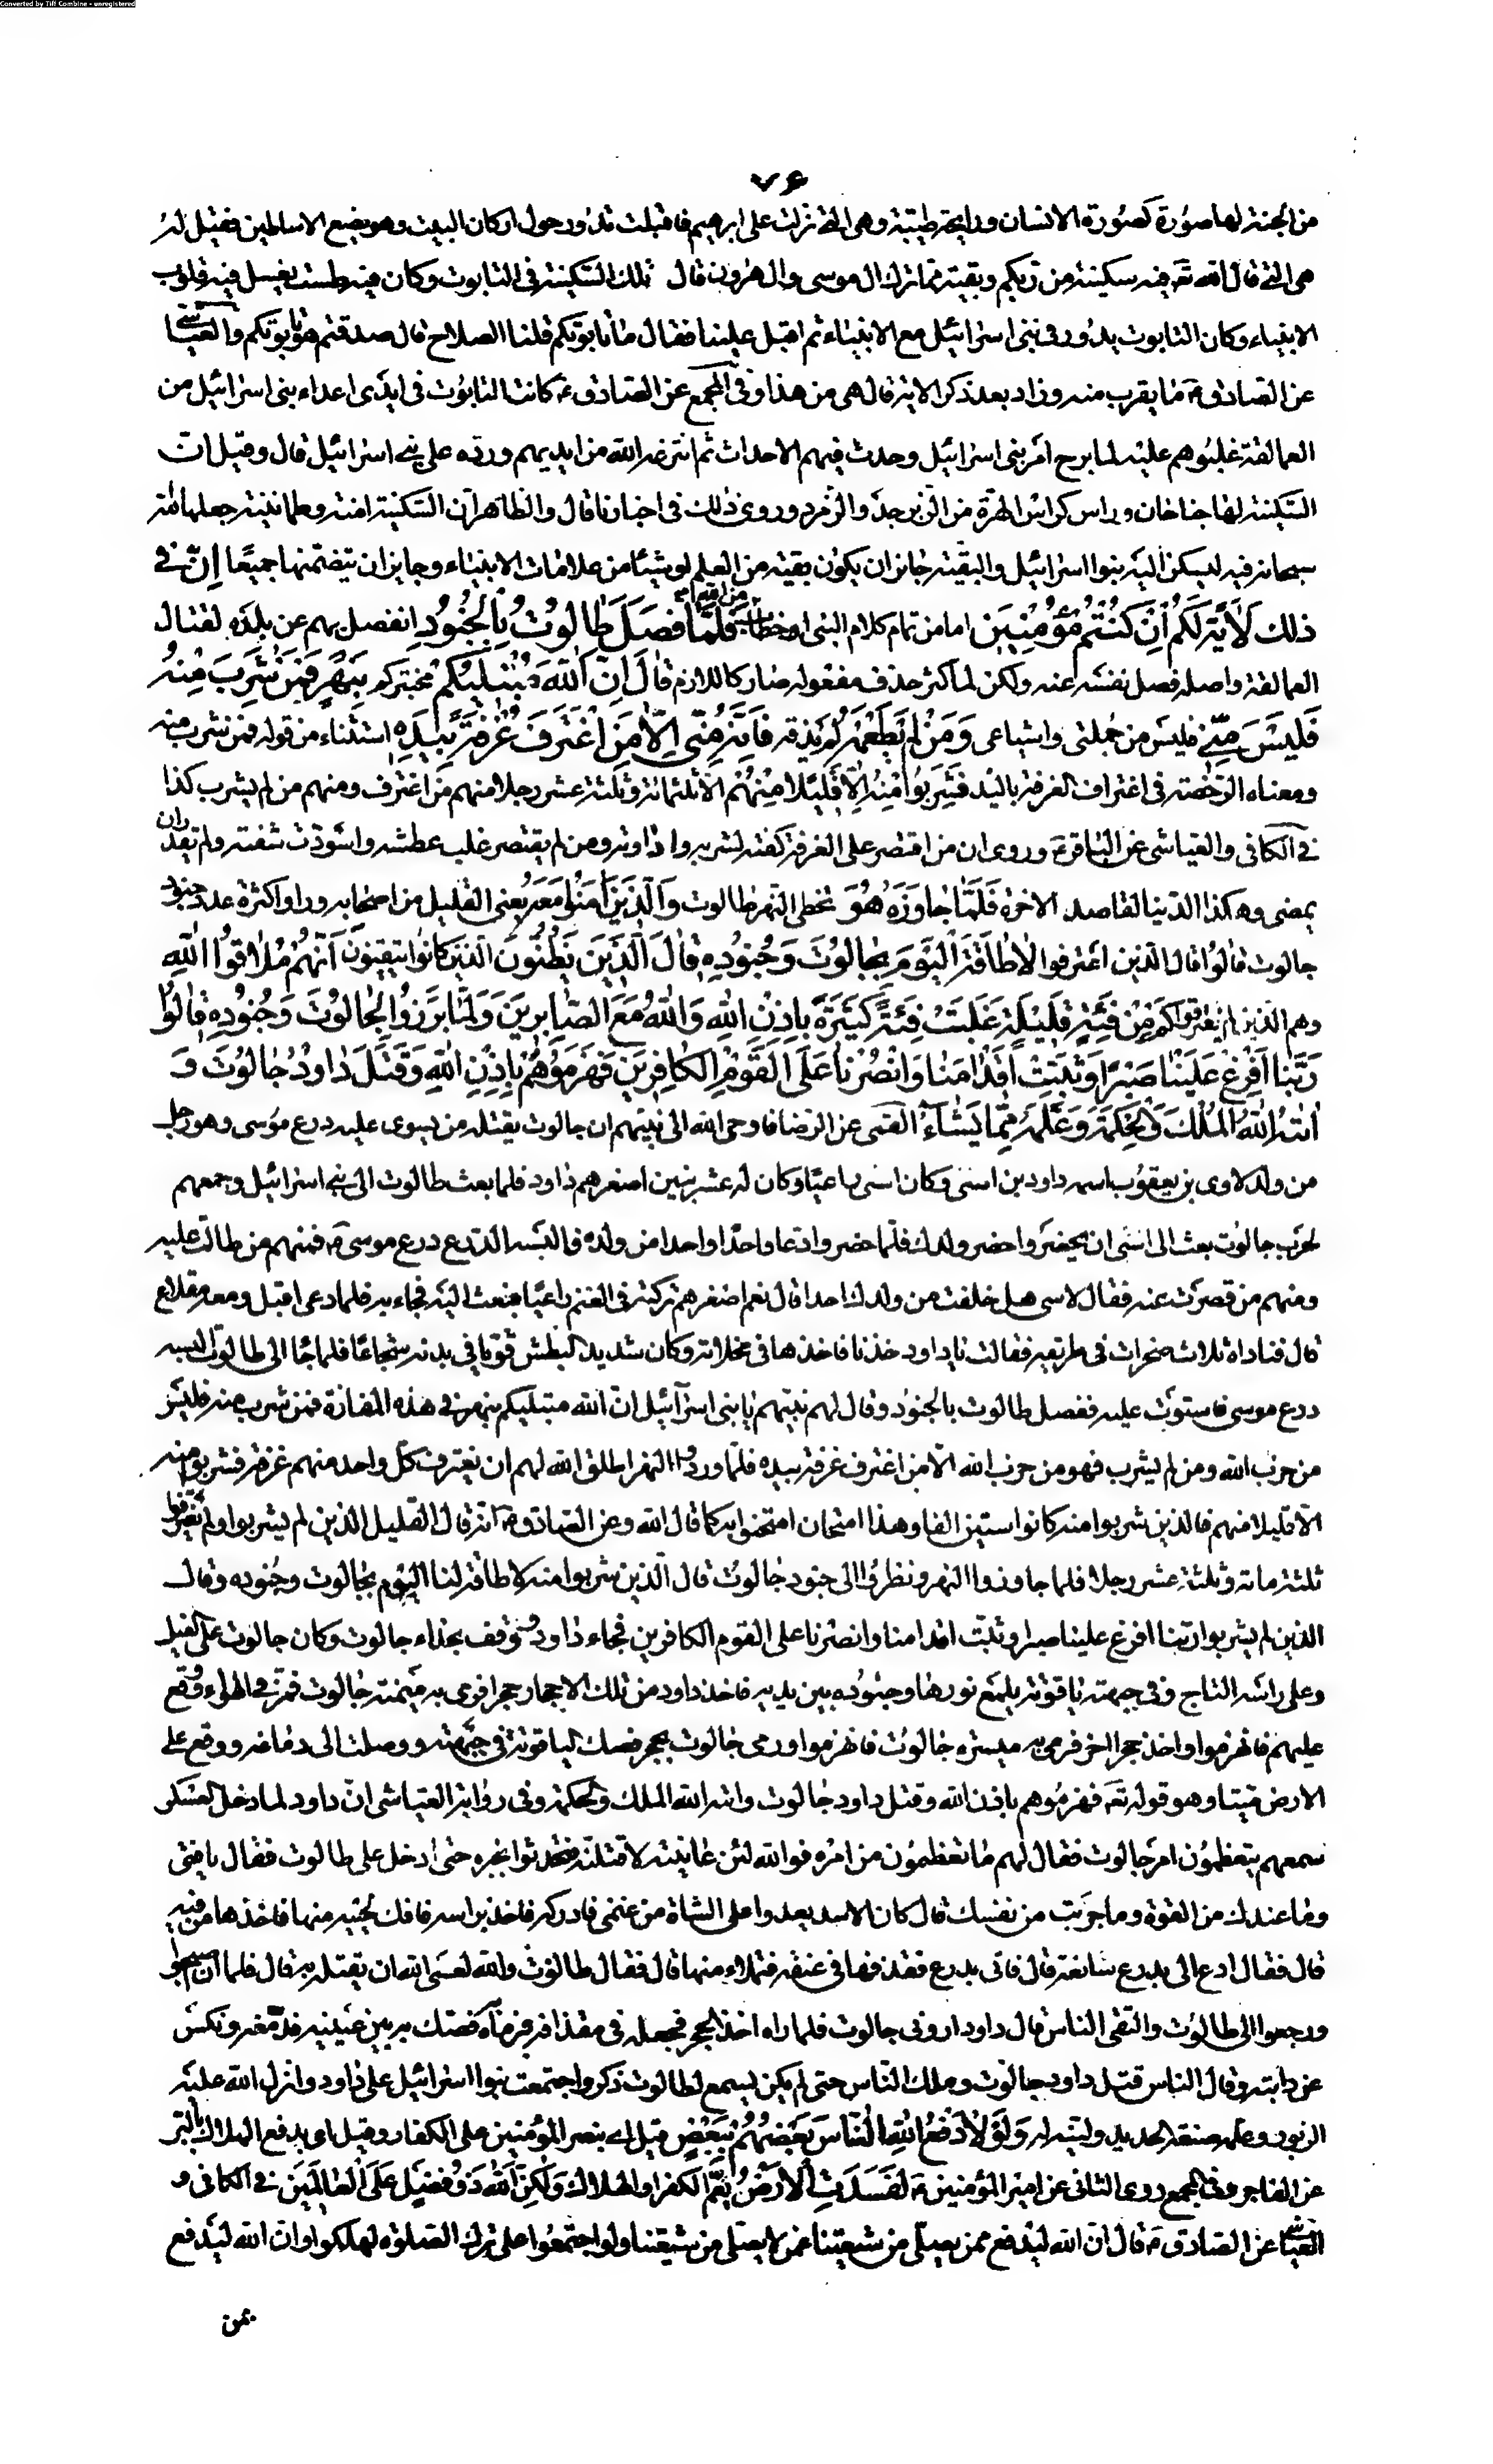 Converted by Tiff Combine - unregistered
٧۶
من الجنة لها صورة كصورة الانسان ورايحة طيبة وهى التى نزلت على ابرهيم فاقبلت تدور حول اركان البيت وهو يضع الاساطين فقيل له
هى التى قال الله تع فيه سكينة من ربكم وبقية مما ترك ال موسى وال هرون قال تلك السكينة فى التابوت وكان فيه طست يغسل فيه قلوب
الانبياء وكان التابوت يدور فى بنى اسرائيل مع الانبياء ثم اقبل علينا فقال ما تابوتكم قلنا السلاح قال صدقتم هو تابوتكم والعياشى
عن الصادق ع ما يقرب منه وزاد بعد ذكر الاية قال هى من هذا وفى المجمع عن الصادق ع كانت التابوت فى ايدى اعداء بنى اسرائيل من
العمالقة غلبوهم عليه لما برح امر بنى اسرائيل وحدث فيهم الاحداث ثم انتزعه الله من ايديهم ورده على بنى اسرائيل قال وقيل ان
السكينة لها جناحان وراس كراس الهرة من الزبرجد والزمرد وروى ذلك فى اخبارنا قال والظاهر ان السكينة امنة وطمانينة جعلها الله
سبحانه فيه ليسكن اليه بنوا اسرائيل والبقية جائز ان يكون بقية من العلم او شيئا من علامات الانبياء وجايز ان يتضمنها جميعا اِنَّ فى
ذلك لَاٰيَةً لَكُمْ اِنْ كُنْتُمْ مُؤْمِنِينَ اما من تمام كلام النبى او خطاب من الله فَلَمَّا فَصَلَ طَالُوتُ بِالْجُنُودِ انفصل بهم عن بلده لقتال
العمالقة واصله فصل نفسه عنه ولكن لما كثر حذف مفعوله صار كاللازم قَالَ اِنَّ اللهَ مُبْتَلِيكُمْ مختبركم بِنَهَرٍ فَمَنْ شَرِبَ مِنْهُ
فَلَيْسَ مِنِّى فليس من جملتى واشياعى وَمَنْ لَمْ يَطْعَمْهُ لم يذقه فَاِنَّهُ مِنِّى اِلَّا مَنِ اغْتَرَفَ غُرْفَةً بِيَدِهِ استثناء من قوله فمن شرب منه
ومعناه الرخصة فى اغتراف الغرفة باليد فَشَرِبُوا مِنْهُ اِلَّا قَلِيلًا مِنْهُمْ الا ثلثمائة وثلثة عشر رجلا منهم من اغترف ومنهم من لم يشرب كذا
فى الكافى والعياشى عن الباقر ع وروى ان من اقتصر على الغرفة كفته لشربه واداوته ومن لم يقتصر غلب عطشه واسودت شفته ولم يقدر ان
يمضى وهكذا الدنيا لقاصد الاخرة فَلَمَّا جَاوَزَهُ هُوَ تخطى النهر طالوت وَالَّذِينَ اٰمَنُوا مَعَهُ يعنى القليل من اصحابه وراوا كثرة عدد جنود
جالوت قَالُوا قال الذين اغترفوا لَا طَاقَةَ لَنَا الْيَوْمَ بِجَالُوتَ وَجُنُودِهِ قَالَ الَّذِينَ يَظُنُّونَ الذين كانوا يتيقنون اَنَّهُمْ مُلَاقُوا اللهِ
وهم الذين لم يغترفوا كَمْ مِنْ فِئَةٍ قَلِيلَةٍ غَلَبَتْ فِئَةً كَثِيرَةً بِاِذْنِ اللهِ وَاللهُ مَعَ الصَّابِرِينَ وَلَمَّا بَرَزُوا لِجَالُوتَ وَجُنُودِهِ قَالُوا
رَبَّنَا اَفْرِغْ عَلَيْنَا صَبْرًا وَثَبِّتْ اَقْدَامَنَا وَانْصُرْنَا عَلَى الْقَوْمِ الْكَافِرِينَ فَهَزَمُوهُمْ بِاِذْنِ اللهِ وَقَتَلَ دَاوُدُ جَالُوتَ وَ
اٰتٰهُ اللهُ الْمُلْكَ وَالْحِكْمَةَ وَعَلَّمَهُ مِمَّا يَشَاءُ القمى عن الرضا فاوحى الله الى نبيهم ان جالوت يقتله من يسوى عليه درع موسى وهو رجل
من ولد لاوى بن يعقوب اسمه داود بن اسى وكان اسى راعيا وكان له عشر بنين اصغرهم داود فلما بعث طالوت الى بنى اسرائيل وجمعهم
لحرب جالوت بعث الى اسى ان يحضر واحضر ولدك فلما حضروا دعا واحدا واحدا من ولده فالبسه الدرع درع موسى ع فمنهم من طالت عليه
ومنهم من قصرت عنه فقال لاسى هل خلفت من ولدك احدا قال نعم اصغرهم تركته فى الغنم راعيا فبعث اليه فجاء به فلما دعى اقبل ومعه مقلاع
قال فناداه ثلاث صخرات فى طريقه فقالت يا داود خذنا فاخذها فى مخلاته وكان شديد البطش قويا فى بدنه شجاعا فلما جاء الى طالوت البسه
درع موسى فاستوت عليه ففصل طالوت بالجنود وقال لهم نبيهم يا بنى اسرآئيل ان الله مبتليكم بنهر فى هذه المفازة فمن شرب منه فليس
من حزب الله ومن لم يشرب فهو من حزب الله الا من اغترف غرفة بيده فلما وردوا النهر اطلق الله لهم ان يغترف كل واحد منهم غرفة فشربوا منه
الا قليلا منهم فالذين شربوا منه كانوا ستين الفا وهذا امتحان امتحنوا به كما قال الله وعن الصادق ع انه قال القليل الذين لم يشربوا ولم يغترفوا
ثلثة مائة وثلثة عشر رجلا فلما جاوزوا النهر ونظروا الى جنود جالوت قال الذين شربوا منه لا طاقة لنا اليوم بجالوت وجنوده وقال
الذين لم يشربوا ربنا افرغ علينا صبرا وثبت اقدامنا وانصرنا على القوم الكافرين فجاء داود فوقف بحذاء جالوت وكان جالوت على الفيل
وعلى راسه التاج وفى جبهته ياقوتة يلمع نورها وجنوده بين يديه فاخذ داود من تلك الاحجار حجرا فرمى به ميمنة جالوت فمر فى الهواء ووقع
عليهم فانهزموا واخذ حجرا اخر فرمى به ميسرة جالوت فانهزموا ورمى جالوت بحجر فصك الياقوتة فى جبهته ووصلت الى دماغه ووقع على
الارض ميتا وهو قوله تع فهزموهم باذن الله وقتل داود جالوت واتيه الله الملك والحكمة وفى رواية العياشى ان داود لما دخل العسكر
سمعهم يتعظمون امر جالوت فقال لهم ما تعظمون من امره فوالله لئن عاينته لاقتلنه فتحدثوا بخبره حتى ادخل على طالوت فقال يا فتى
وما عندك من القوة وما جربت من نفسك قال كان الاسد يعدوا على الشاة من غنمى فادركه فاخذ براسه فافك لحييه منها فاخذها من فيه
قال فقال ادع الى بدرع سابغة قال فاتى بدرع فقذفها فى عنقه فتملاء منها قال فقال طالوت والله لعسى الله ان يقتله به قال فلما ان اصبحوا
ورجعوا الى طالوت والتقى الناس قال داود ارونى جالوت فلما راه اخذ الحجر فجعله فى مقذافه فرماه فصك به بين عينيه فدمغه ونكس
عن دابته وقال الناس قتل داود جالوت وملك الناس حتى لم يكن يسمع لطالوت ذكر واجتمعت بنوا اسرائيل على داود وانزل الله عليه
الزبور وعلمه صنعة الحديد ولينه له وَلَوْلَا دَفْعُ اللهِ النَّاسَ بَعْضَهُمْ بِبَعْضٍ قيل اى بنصر المؤمنين على الكفار وقيل اى يدفع الهلاك بالبر
عن الفاجر وفى المجمع روى الثانى عن امير المؤمنين ع لَفَسَدَتِ الْاَرْضُ بعم الكفر او الهلاك وَلٰكِنَّ اللهَ ذُو فَضْلٍ عَلَى الْعَالَمِينَ فى الكافى و
العياشى عن الصادق ع قال ان الله ليدفع بمن يصلى من شيعتنا عمن لا يصلى من شيعتنا ولو اجتمعوا على ترك الصلوة لهلكوا وان الله ليدفع
بمن